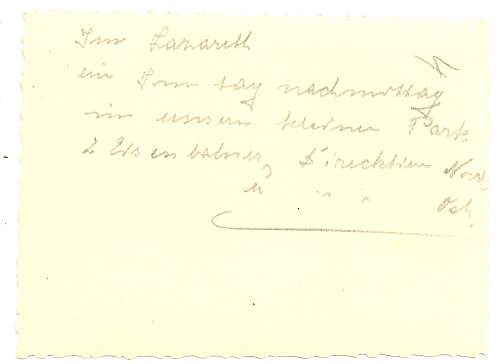 Im Lazareth
ein Sonn tag nachmittag
im unsern kleinen Park
2 Eisenbahner, Direcktion Nord
u " " Ost.